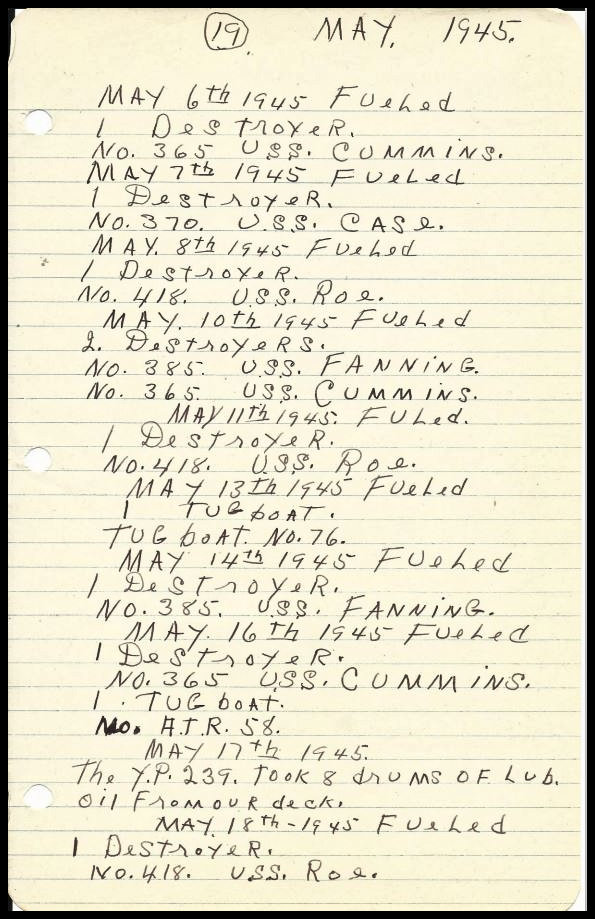 19. MAY. 1945.
MAY 6th 1945 Fueled
1 Destroyer.
No. 365 U.S.S. Cummins.
MAY 7th 1945 Fueled
1 Destroyer.
No. 370. U.S.S. Case.
MAY. 8th 1945 Fueled
1 Destroyer.
No. 418. U.S.S. Roe.
MAY. 10th 1945 Fueled
2. Destroyers.
No. 385. U.S.S. Fanning.
No. 365. U.S.S. Cummins.
MAY 11th 1945. Fuled.
1 Destroyer.
No. 418. U.S.S. Roe.
MAY 13th 1945 Fueled
1 Tug boat.
Tug boat. No. 76.
MAY 14th 1945 Fueled
1 Destroyer.
No. 385. U.S.S. Fanning.
MAY. 16th 1945 Fueled
1 Destroyer.
No. 365 U.S.S. Cummins.
1. Tug boat.
No. A.T.R. 58.
MAY 17th 1945.
The Y.P. 239. Took 8 drums of Lub.
oil From our deck.
MAY. 18th-1945 Fueled
1 Destroyer.
No. 418. U.S.S. Roe.